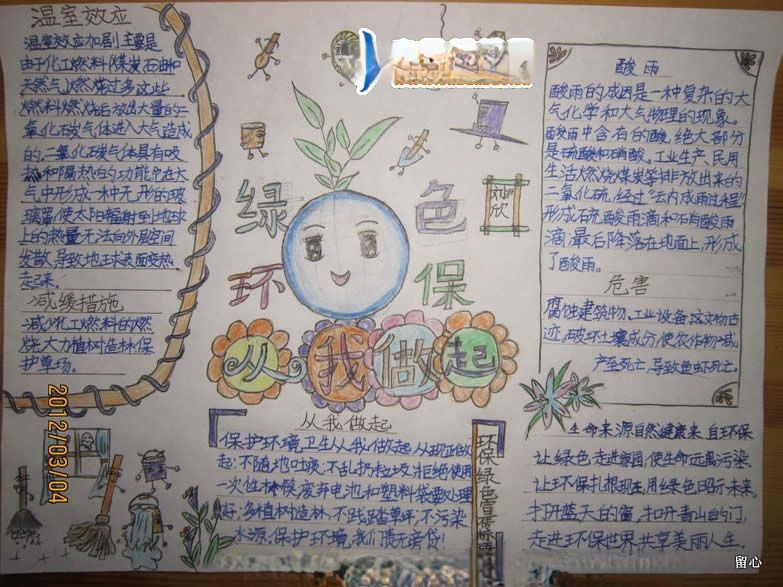 温室效应
温室效应加剧主要是
由于化工燃料(煤炭石油和
天然气)燃烧过多这些
燃料燃烧后放出大量的二
氧化碳气体进入大气造成
的.二氧化碳气体具有吸
热和隔热的功能.它在大
气中形成一种无形的玻
璃罩,使太阳辐射到地球
上的热量无法向外层空间
发散,导致地球表面变热
起来.
减缓措施
减少化工燃料的燃
烧.大力植树造林.保
护草场.
绿色
环保
从我做起
酸雨
酸雨的成因是一种复杂的大
气化学和大气物理的现象。
酸雨中含有的酸,绝大部分
是硫酸和硝酸。工业生产,民用
生活燃烧煤炭等排放出来的
二氧化硫,经过“云内成雨过程”
形成硫酸雨滴和硝酸雨
滴,最后降落在地面上,形成
了酸雨。
危害
腐蚀建筑物、工业设备、这文物古
迹,破坏土壤成分,使农作物减
产至死亡,导致鱼虾死亡。
从我做起
保护环境卫生从我做起,从现在做
起:不随地吐痰,不乱扔垃圾,拒绝使用
一次性筷,废弃电池和塑料袋要处理
好,多植树造林,不践踏草坪,不污染
水源,保护环境,我们责无旁贷!
环保绿色
生命来源自然,健康来自环保
让绿色走进家园,使生命远离污染.
让环保扎根现在,用绿色昭示未来.
打开蓝天的窗,打开青山的门,
走进环保世界,共享美丽人生.
2012/03/04
留心